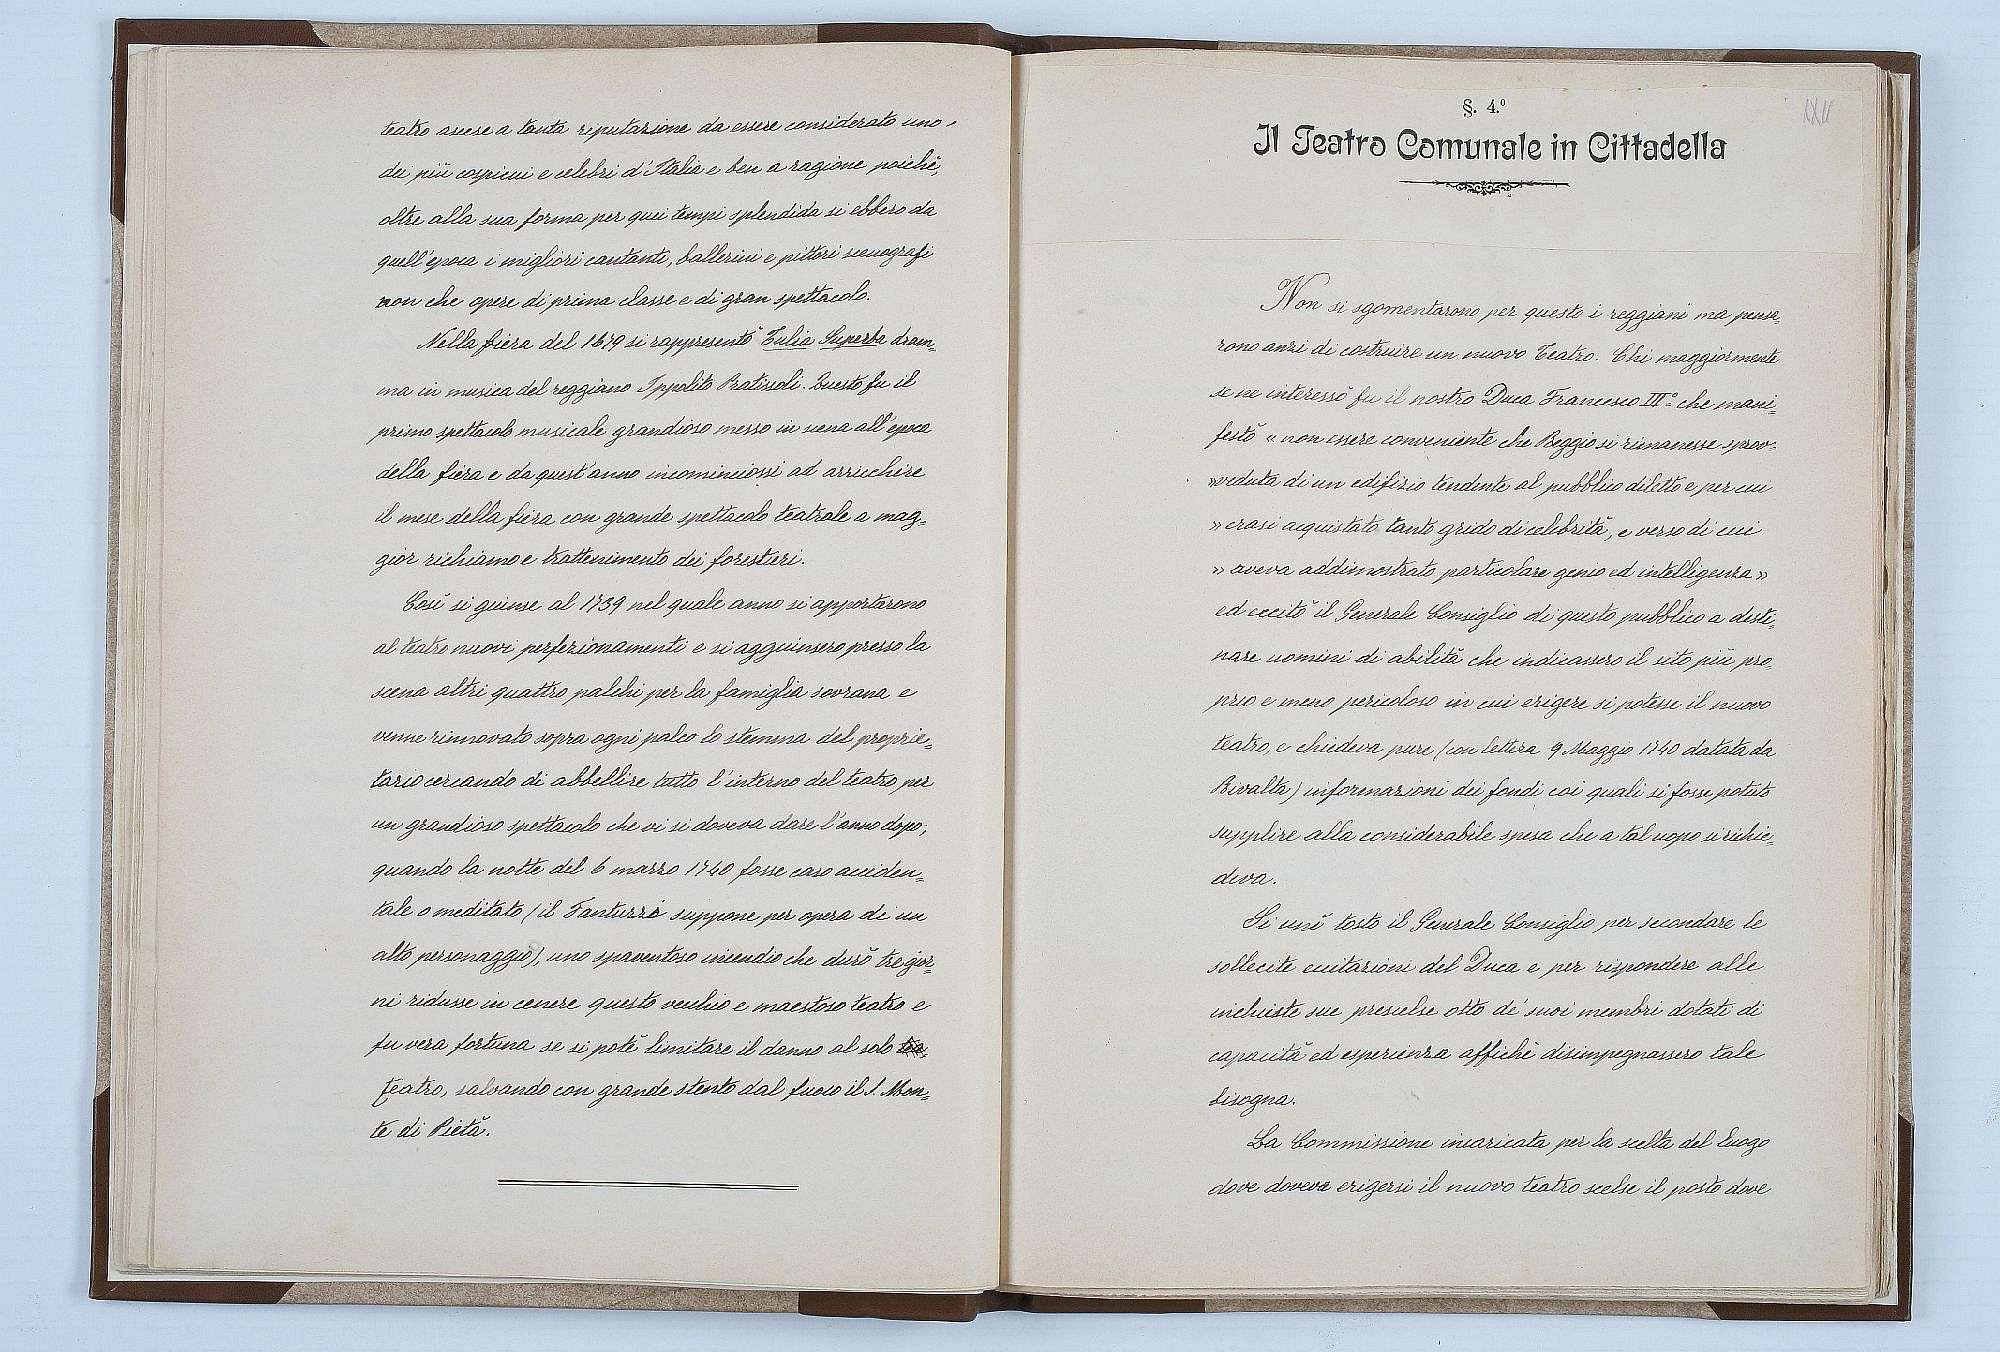 teatro ascese a tanta reputazione da essere considerato uno
dei più cospicui e celebri d'Italia e ben a ragione poichè,
oltre alla sua forma per quei tempi splendida si ebbero da
quell'epoca i migliori cantanti, ballerini e pittori scenografi
non che opere di prima classe e di gran spettacolo.
Nella fiera del 1679 si rappresentò Tulia Superba dram=
ma in musica del reggiano Ippolito Pratissoli. Questo fu il
primo spettacolo musicale grandioso messo in scena all'epoca
della fiera e da quest'anno incominciossi ad arricchire
il mese della fiera con grande spettacolo teatrale a mag=
gior richiamo e trattenimento dei forestieri.
Così si giunse al 1739 nel quale anno si apportarono
al teatro nuovi perfezionamenti e si aggiunsero presso la
scena altri quattro palchi per la famiglia sovrana e
venne rinnovato sopra ogni palco lo stemma del proprie=
tario cercando di abbellire tutto l'interno del teatro per
un grandioso spettacolo che vi si doveva dare l'anno dopo,
quando la notte del 6 marzo 1740 fosse caso acciden=
tale o meditato (il Fantuzzi suppone per opera di un
alto personaggio), uno spaventoso incendio che durò tre gior=
ni ridusse in cenere questo vecchio e maestoso teatro e
fu vera fortuna se si potè limitare il danno al solo
teatro, salvando con grande stento dal fuoco il S. Mon=
te di Pietà.
XXII
§. 4.º
Il Teatro Comunale in Cittadella
Non si sgomentarono per questo i reggiani ma pensa=
rono anzi di costruire un nuovo Teatro. Chi maggiormente
se ne interessò fu il nostro Duca Francesco IIIº che mani=
festò « non essere conveniente che Reggio si rimanesse sprov=
» veduta di un edifizio tendente al pubblico diletto e per cui
» erasi acquistato tanto grido di celebrità, e verso di cui
» aveva addimostrato particolare genio ed intelligenza »
ed eccitò il Generale Consiglio di questo pubblico a desti=
nare uomini di abilità che indicassero il sito più pro=
prio e meno pericoloso in cui erigere si potesse il nuovo
teatro, e chiedeva pure (con lettera 9 Maggio 1740 datata da
Rivalta) informazioni dei fondi coi quali si fosse potuto
supplire alla considerabile spesa che a tal uopo si richie=
deva.
Si unì tosto il Generale Consiglio per secondare le
sollecite eccitazioni del Duca e per rispondere alle
inchieste sue prescelse otto de' suoi membri dotati di
capacità ed esperienza affichè disimpegnassero tale
bisogna.
La Commissione incaricata per la scelta del luogo
dove doveva erigersi il nuovo teatro scelse il posto dove